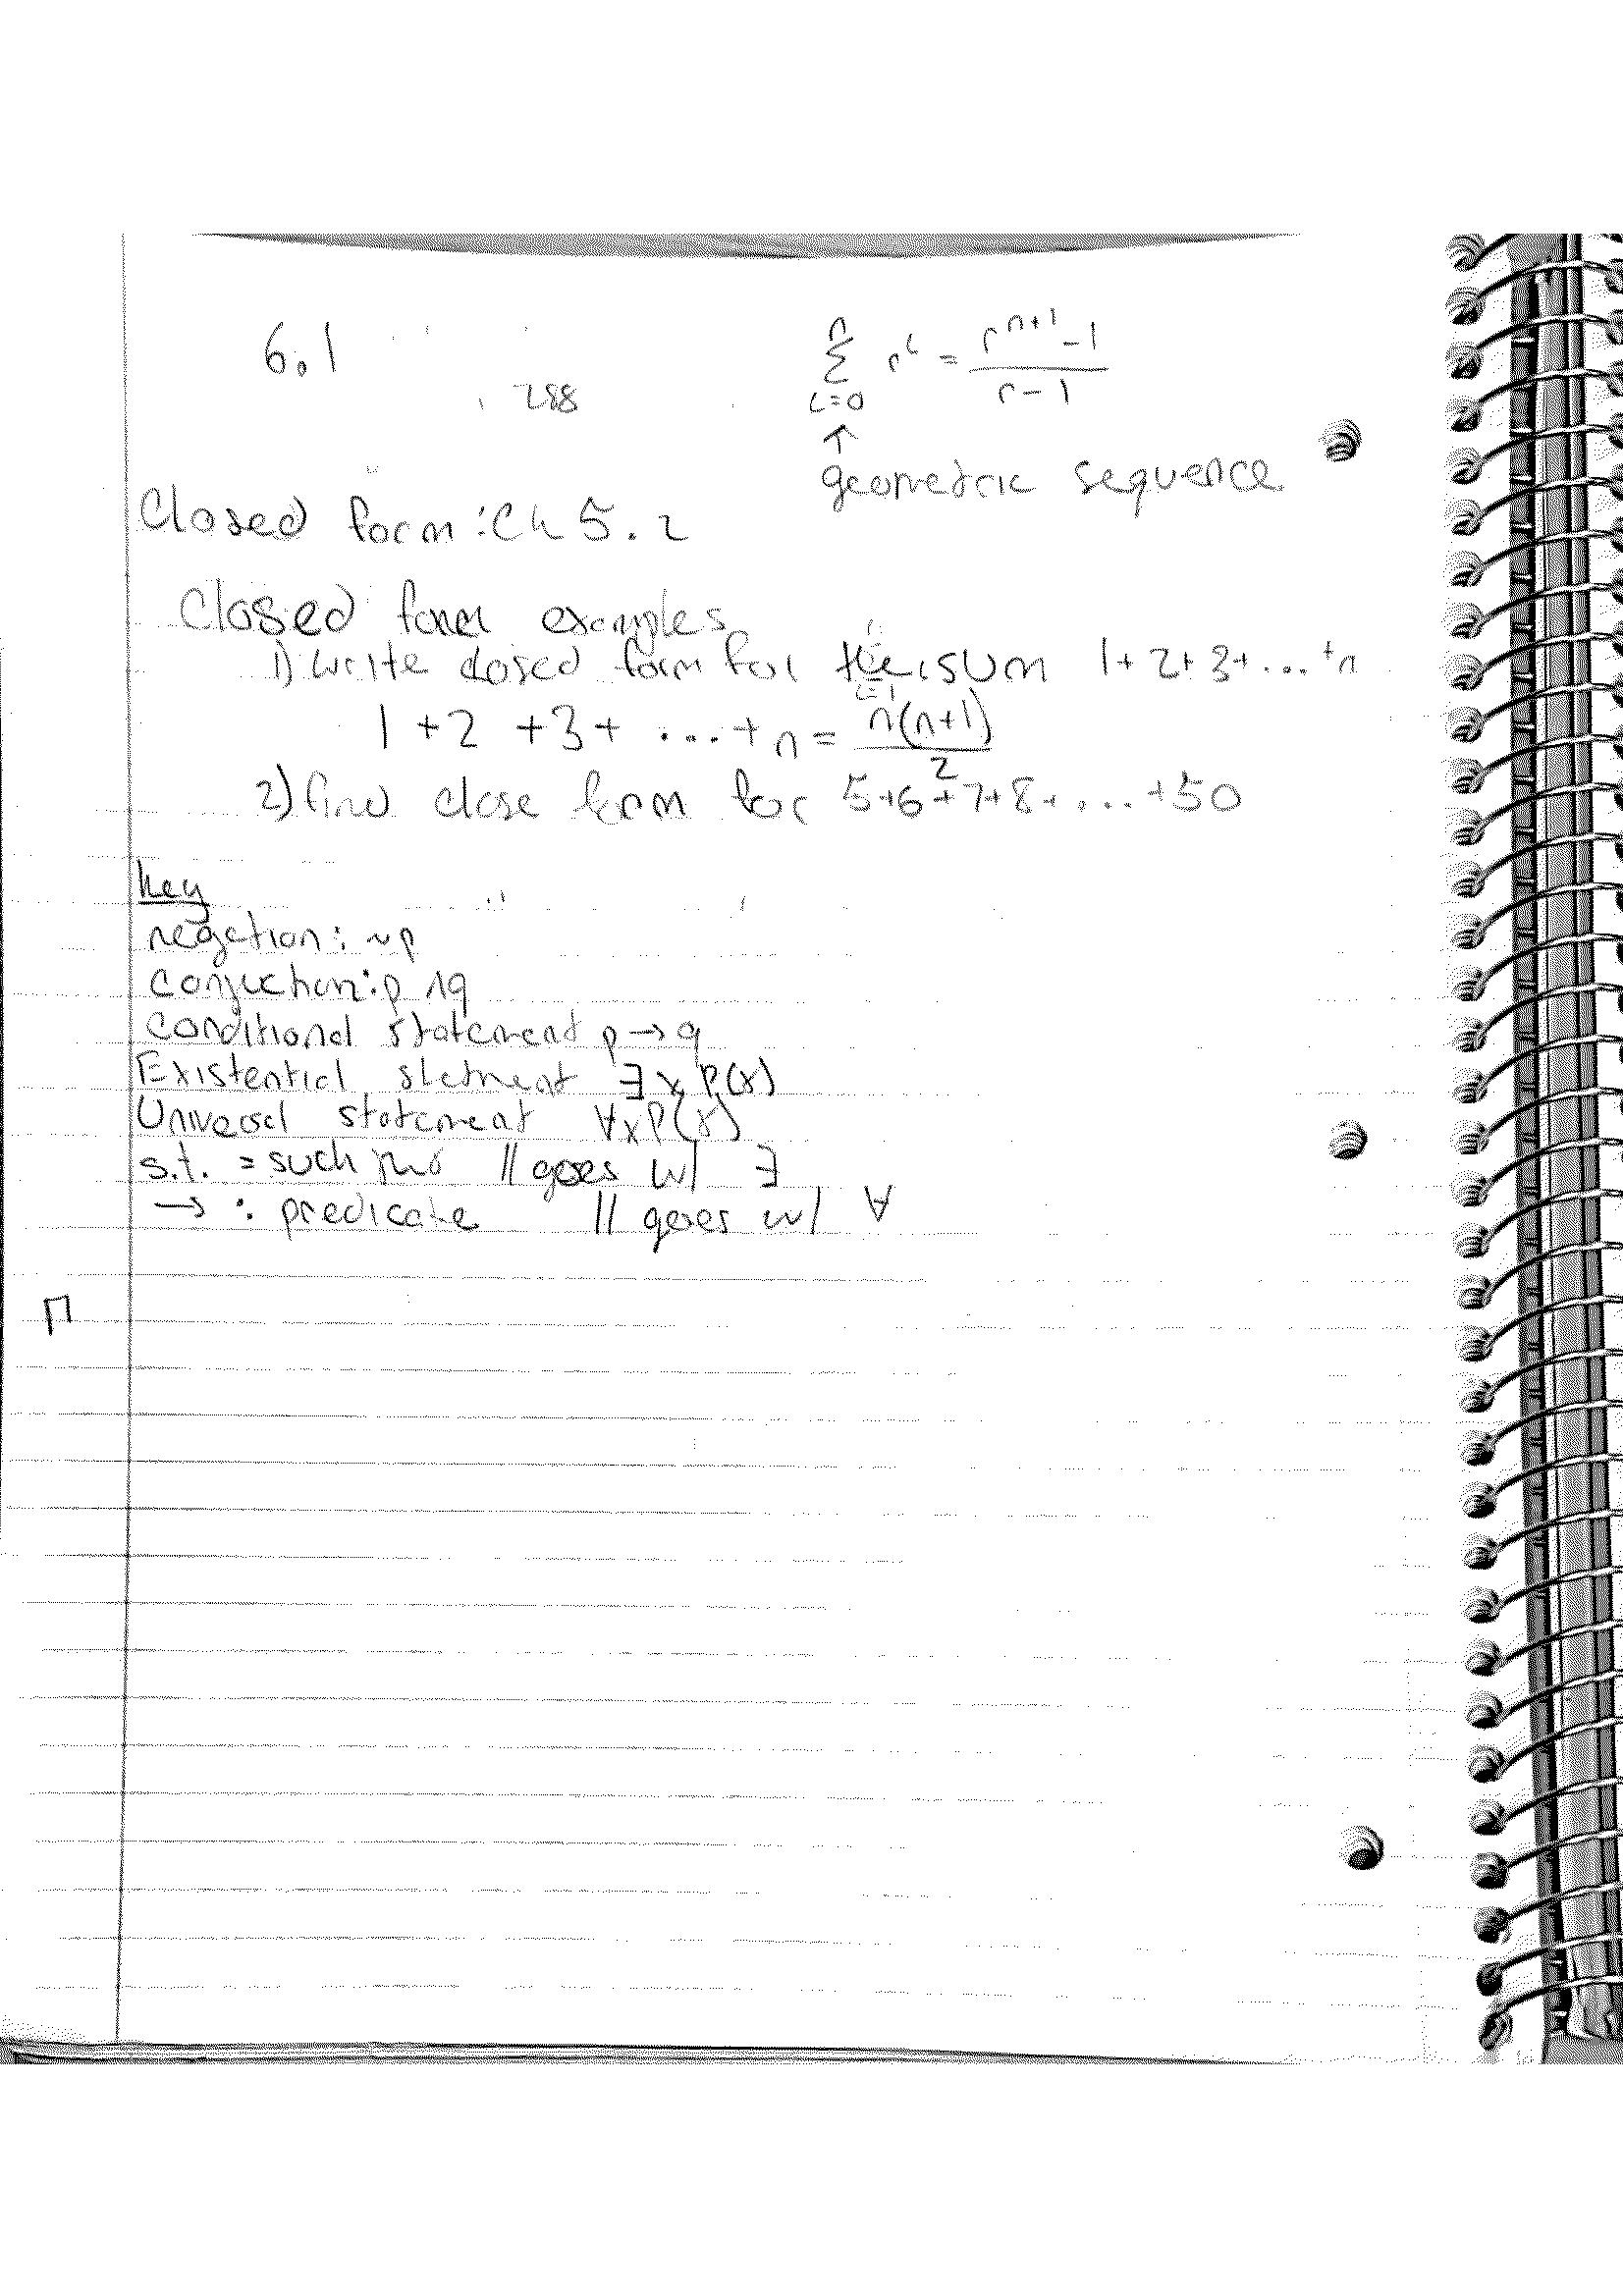 6.1
288
n
Σ r^i = (r^(n+1) - 1)/(r - 1)
i=0
↑
geometric sequence
Closed form: Ch 5.2
Closed form examples
1) write closed form for the sum 1+2+3+...+n
1+2+3+...+n = n(n+1)/2
2) find close form for 5+6+7+8+...+50
key
negation: ~p
conjuction: p ∧ q
conditional statement p → q
Existential statment ∃x P(x)
Universal statement ∀x P(x)
s.t. = such // goes w/ ∃
→ : predicate // goes w/ ∀
Π